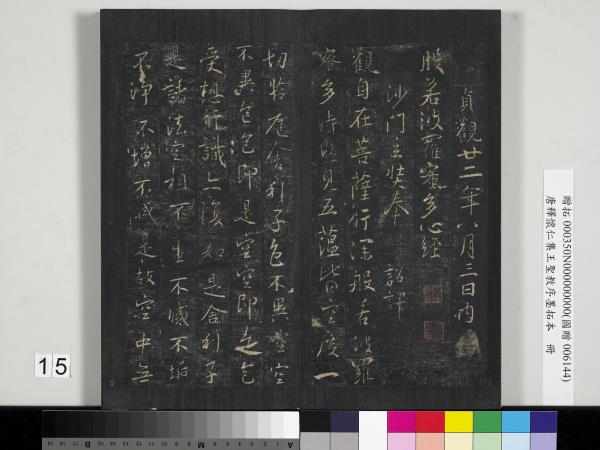 貞觀廿二年八月三日內
般若波羅蜜多心經
沙門玄奘奉 詔譯
觀自在菩薩行深般若波羅
蜜多時照見五蘊皆空度一
切苦厄舍利子色不異空空
不異色色即是空空即是色
受想行識亦復如是舍利子
是諸法空相不生不滅不垢
不淨不增不減是故空中無
贈拓 000350N000000000(國贈 006144)
唐釋懷仁集王聖教序墨拓本 冊
15
A 1 2 3 4 5 6 M 8 9 10 11 12 13 14 15 B 17 18 19